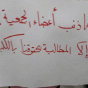 ما ذنب أعضاء الجمعية
إلا المطالبة بحقوقنا بالكا